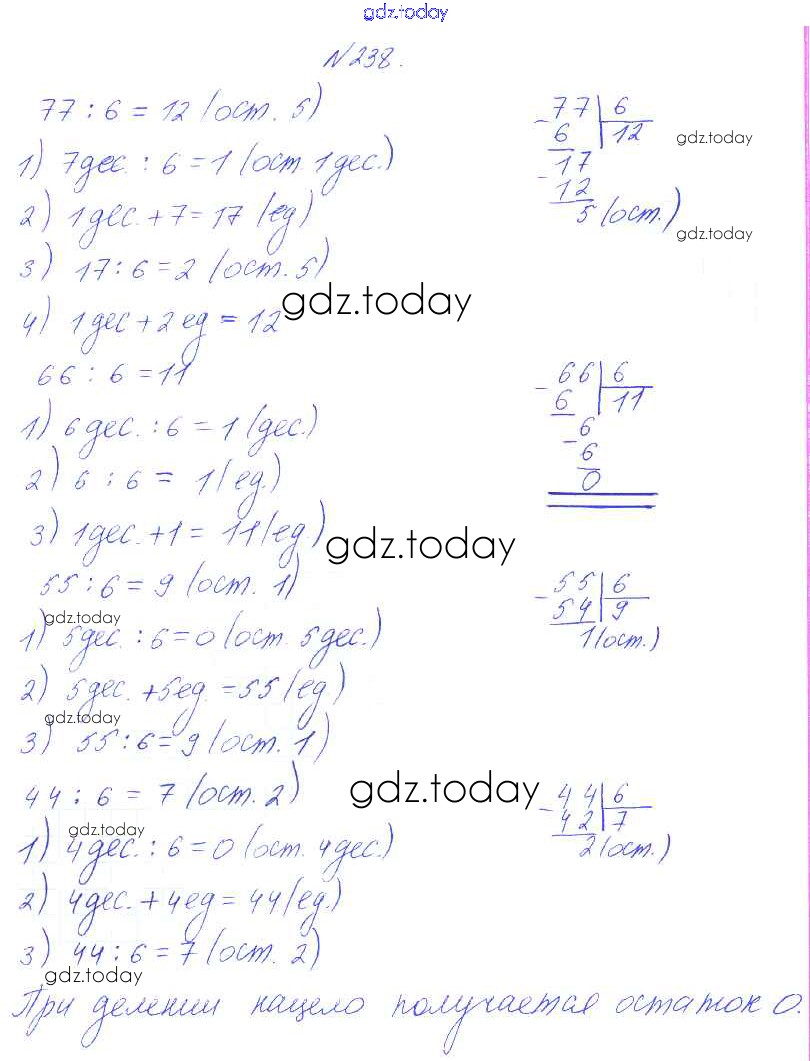 gdz.today
№238.
77 : 6 = 12 (ост. 5)
1) 7дес. : 6 = 1 (ост. 1дес.)
2) 1дес. + 7 = 17 (ед)
3) 17 : 6 = 2 (ост. 5)
4) 1дес + 2ед = 12
77 6
- 6 12
17
- 12
5 (ост.)
gdz.today
gdz.today
gdz.today
66 : 6 = 11
1) 6дес. : 6 = 1 (дес.)
2) 6 : 6 = 1 (ед.)
3) 1дес. + 1 = 11 (ед)
66 6
- 6 11
6
- 6
0
gdz.today
55 : 6 = 9 (ост. 1)
gdz.today
1) 5дес. : 6 = 0 (ост. 5дес.)
2) 5дес. + 5ед. = 55 (ед)
gdz.today
3) 55 : 6 = 9 (ост. 1)
55 6
- 54 9
1 (ост.)
44 : 6 = 7 (ост. 2)
gdz.today
gdz.today
1) 4дес. : 6 = 0 (ост. 4дес.)
2) 4дес. + 4ед = 44 (ед.)
3) 44 : 6 = 7 (ост. 2)
44 6
- 42 7
2 (ост.)
gdz.today
При делении нацело получается остаток 0.